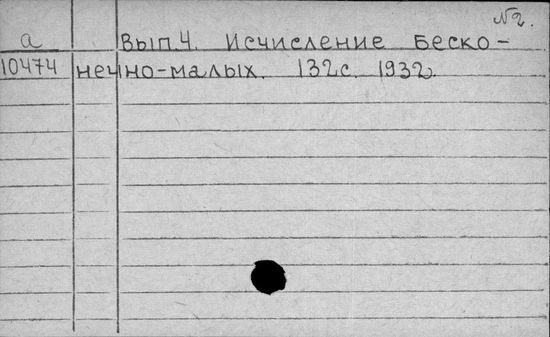 №2.
а Вып.4. Исчисление Беско-
10474 нечно-малых. 132с. 1932.